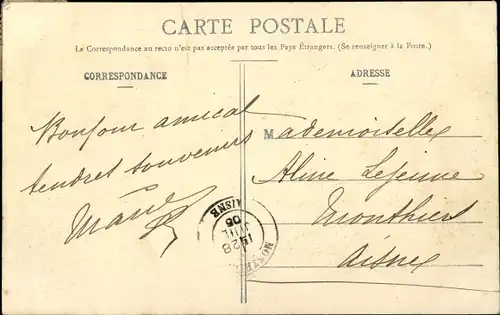 CARTE POSTALE
La Correspondance au recto n'est pas acceptée par tous les Pays Étrangers. (Se renseigner à la Poste.)
CORRESPONDANCE
ADRESSE
Bonjour amical
tendres souvenirs
Mademoiselle
Aline Lejeune
Monthiers
Aisne
AISNE
15 28
JUIL
06